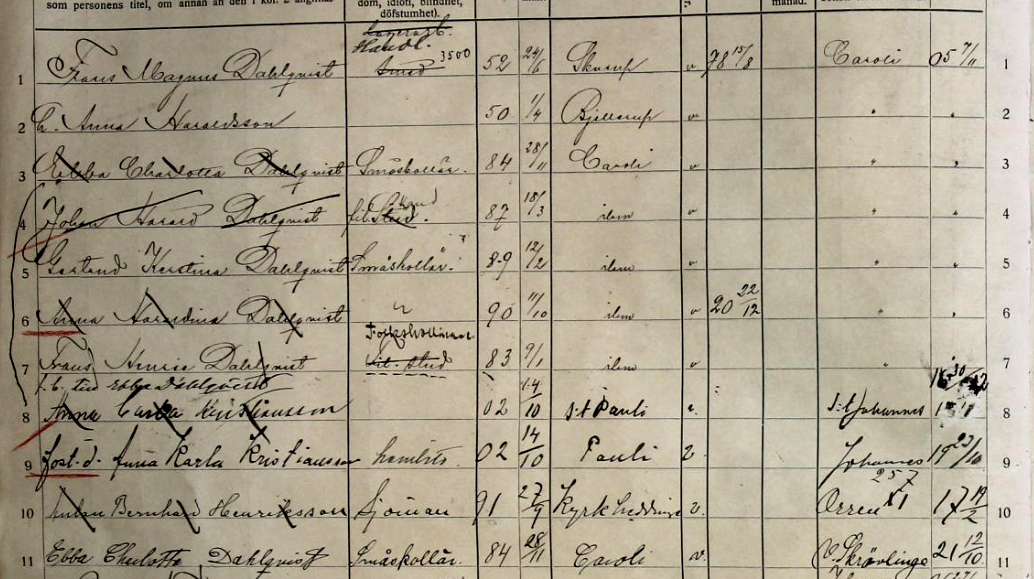 som personens titel, om annan än den i kol. 2 angifna.
dom, idioti, blindhet,
döfstumhet).
månad.
Lagerarb.
Handl.
1 Frans Magnus Dahlqvist Smed 3500 52 24/6 Skurup v 78 15/8 Caroli 05 7/11 1
2 h. Anna Haraldsson 50 1/4 Bjellerup v " " 2
3 Ebba Charlotta Dahlqvist Småskollär. 84 28/11 Caroli v " " 3
4 Johan Harald Dahlqvist fil. Stud. kand 87 18/3 idem v " " 4
5 Gertrud Kerstina Dahlqvist Småskollär. 89 12/2 idem v " " 5
6 Anna Haraldina Dahlqvist 90 11/10 idem v 20 22/12 " " 6
Folkskollärare
7 Frans Dahlqvist fil. stud 83 9/1 idem v " " 7
f.b. till Ebba Dahlqvist
8 Anna Carla Kristiansson 02 14/10 S:t Pauli v. S:t Johannes 8
9 fost.d. Anna Karla Kristiansson 02 14/10 Pauli v. Johannes 19 23/10 9
257
10 Anton Bernhard Henriksson sjöman 91 27/9 Kyrkheddinge v. XI 17 19/2 10
11 Ebba Charlotta Dahlqvist Småskollär. 84 28/11 Caroli v. V. Skrävlinge 21 12/10 11